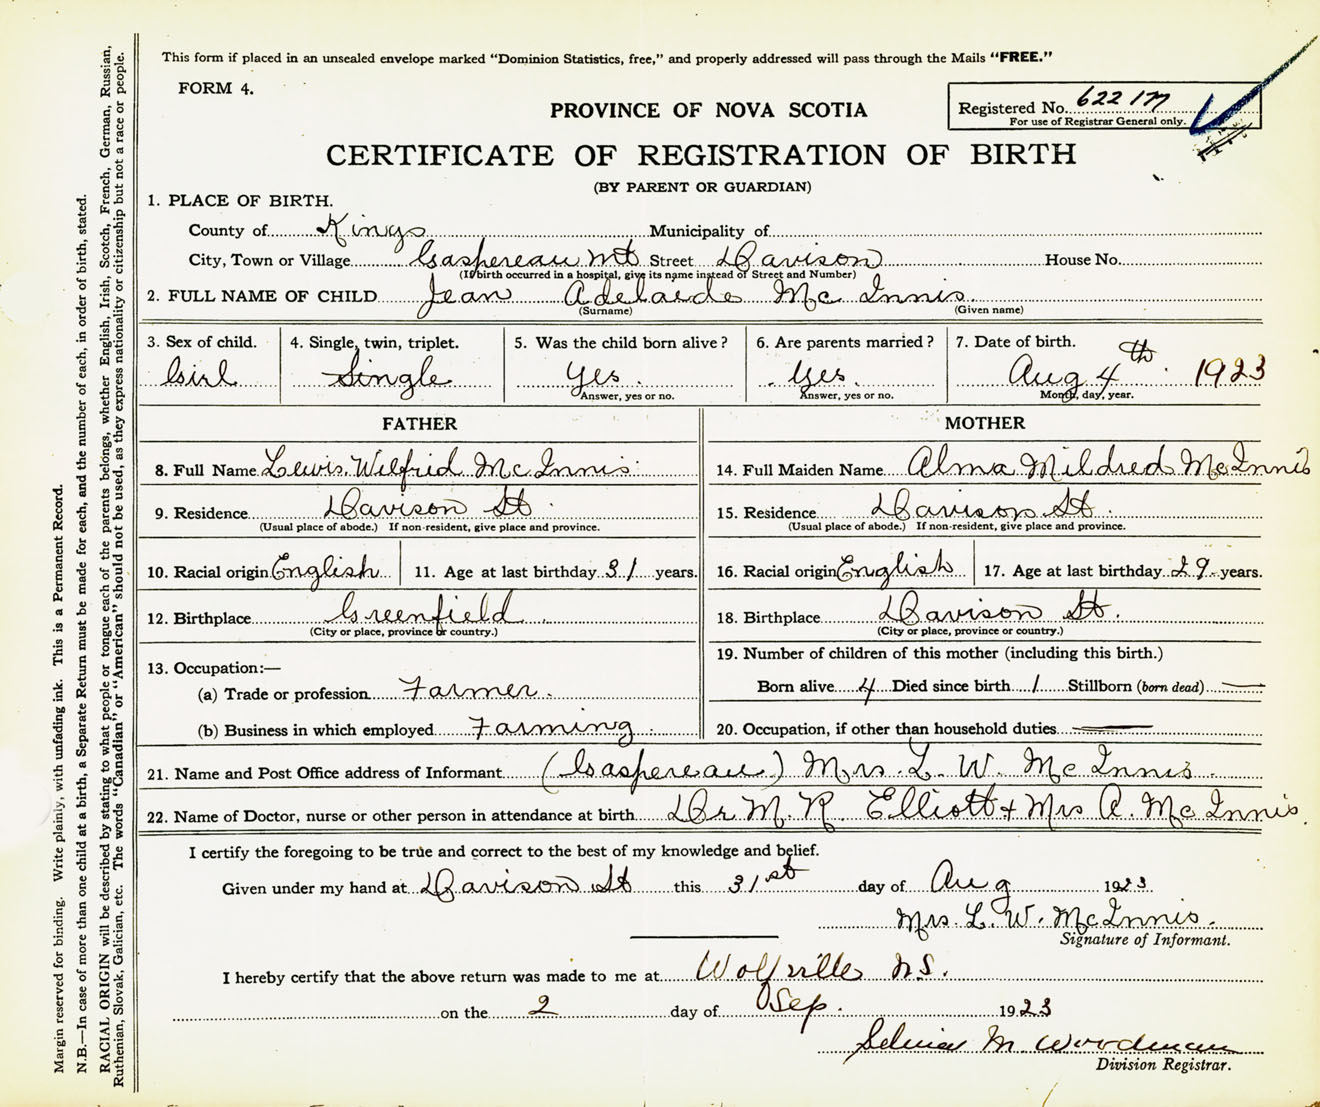 This form if placed in an unsealed envelope marked “Dominion Statistics, free,” and properly addressed will pass through the Mails “FREE.”
FORM 4.
Registered No. 622 177
For use of Registrar General only.
PROVINCE OF NOVA SCOTIA
CERTIFICATE OF REGISTRATION OF BIRTH
(BY PARENT OR GUARDIAN)
1. PLACE OF BIRTH.
County of Kings Municipality of
City, Town or Village Gaspereau Mt Street Davison House No.
(If birth occurred in a hospital, give its name instead of Street and Number)
2. FULL NAME OF CHILD Jean Adelaide Mc Innis
(Surname) (Given name)
3. Sex of child. 4. Single, twin, triplet. 5. Was the child born alive? 6. Are parents married? 7. Date of birth.
Girl Single Yes. Yes. Aug 4th 1923
Answer, yes or no. Answer, yes or no. Month, day, year.
FATHER MOTHER
8. Full Name Lewis Wilfrid Mc Innis 14. Full Maiden Name Alma Mildred McInnis
9. Residence Davison St. 15. Residence Davison St.
(Usual place of abode.) If non-resident, give place and province. (Usual place of abode.) If non-resident, give place and province.
10. Racial origin English 11. Age at last birthday 31 years. 16. Racial origin English 17. Age at last birthday 29 years.
12. Birthplace Greenfield 18. Birthplace Davison St.
(City or place, province or country.) (City or place, province or country.)
13. Occupation:— 19. Number of children of this mother (including this birth.)
(a) Trade or profession Farmer. Born alive 4 Died since birth 1 Stillborn (born dead) —
(b) Business in which employed Farming 20. Occupation, if other than household duties —
21. Name and Post Office address of Informant (Gaspereau) Mrs. L. W. Mc Innis
22. Name of Doctor, nurse or other person in attendance at birth Dr M. R. Elliott + Mrs A. Mc Innis.
I certify the foregoing to be true and correct to the best of my knowledge and belief.
Given under my hand at Davison St this 31st day of Aug 1923
Mrs. L. W. McInnis.
Signature of Informant.
I hereby certify that the above return was made to me at Wolfville N.S.
on the 2 day of Sep. 1923
M Woodman
Division Registrar.
Margin reserved for binding. Write plainly, with unfading ink. This is a Permanent Record.
N.B.—In case of more than one child at a birth, a Separate Return must be made for each, and the number of each, in order of birth, stated.
RACIAL ORIGIN will be described by stating to what people or tongue each of the parents belongs, whether English, Irish, Scotch, French, German, Russian,
Ruthenian, Slovak, Galician, etc. The words “Canadian” or “American” should not be used, as they express nationality or citizenship but not a race or people.